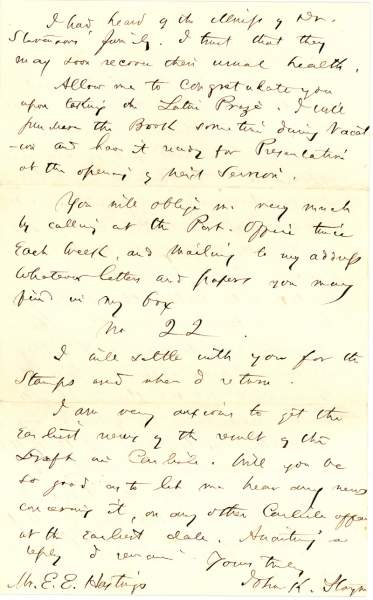 I had heard of the illness of Dr.
Stevensons' family. I trust that they
may soon recover their usual health.
Allow me to congratulate you
upon taking the Latin Prize. I will
purchase the Book sometime during Vacat
-ion and have it ready for Presentation
at the opening of next Session.
You will oblige me very much
by calling at the Post. Office twice
Each Week, and mailing to my address
Whatever letters and papers you may
find in my box
No 22.
I will settle with you for the
Stamps used when I return.
I am very anxious to get the
Earliest news of the result of the
Draft in Carlisle. Will you be
so good as to let me hear any news
concerning it, or any other Carlisle affair
at the Earliest date. Awaiting a
reply I remain Yours truly
Mr. E. E. Hastings John K.